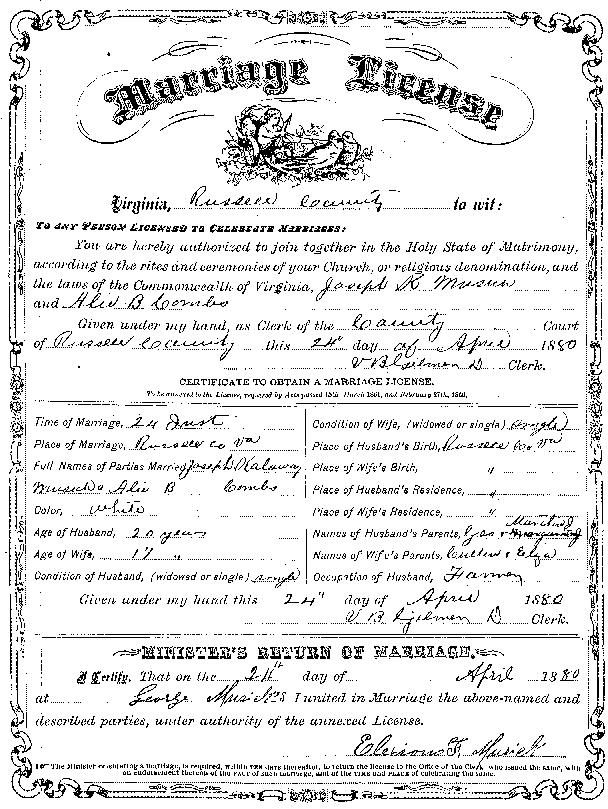 Marriage License
Virginia, Russell County to wit:
TO ANY PERSON LICENSED TO CELEBRATE MARRIAGES:
You are hereby authorized to join together in the Holy State of Matrimony,
according to the rites and ceremonies of your Church, or religious denomination, and
the laws of the Commonwealth of Virginia, Joseph K Musick
and Alie B Combs
Given under my hand, as Clerk of the County Court
of Russell County this 24" day of April 1880
V B Gilmer D Clerk.
CERTIFICATE TO OBTAIN A MARRIAGE LICENSE.
To be annexed to the License, required by Acts passed 15th March 1861, and February 27th, 1866.
Time of Marriage, 24 Inst
Place of Marriage, Russell co Va
Full Names of Parties Married, Joseph Kalaway
Musick & Alie B Combs
Color, White
Age of Husband, 20 years
Age of Wife, 17 "
Condition of Husband, (widowed or single) single
Condition of Wife, (widowed or single) single
Place of Husband's Birth, Russell Co. Va
Place of Wife's Birth, "
Place of Husband's Residence, "
Place of Wife's Residence, "
Names of Husband's Parents, Geo &
Names of Wife's Parents, & Eliza
Occupation of Husband, Farmer
Given under my hand this 24" day of April 1880
V B Gilmer D Clerk.
MINISTER'S RETURN OF MARRIAGE.
I Certify, That on the 24th day of April 1880
at George Musick's I united in Marriage the above-named and
described parties, under authority of the annexed License.
F. Musick
The Minister celebrating a marriage, is required, within TEN DAYS thereafter, to return the license to the Office of the Clerk who issued the same, with
an endorsement thereon of the FACT of such marriage, and of the TIME and PLACE of celebrating the same.